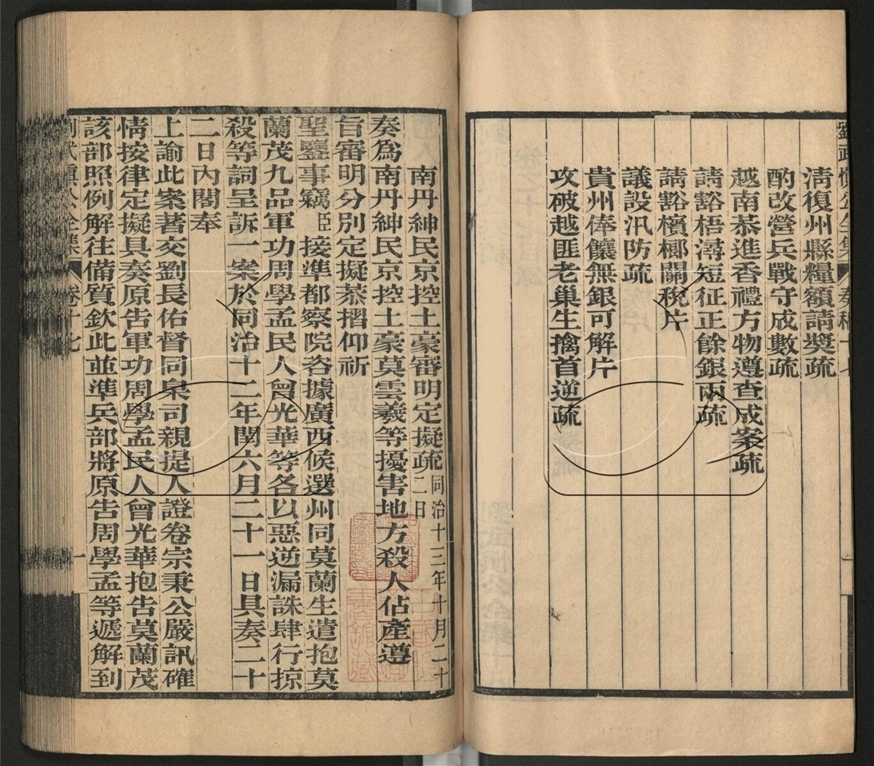 清復州縣糧額請獎疏
酌改營兵戰守成數疏
越南恭進香禮方物遵查成案疏
請豁梧潯短征正餘銀兩疏
請豁檳榔關稅片
議設汛防疏
貴州俸饟無銀可解片
攻破越匪老巢生擒首逆疏
南丹紳民京控土豪審明定擬疏同治十三年十月二十二日
奏為南丹紳民京控土豪莫雲羲等擾害地方殺人佔產遵
旨審明分別定擬恭摺仰祈
聖鑒事竊臣接準都察院咨據廣西候選州同莫蘭生遣抱莫
蘭茂九品軍功周學孟民人曾光華等各以惡逆漏誅肆行掠
殺等詞呈訴一案於同治十二年閏六月二十一日具奏二十
二日內閣奉
上諭此案著交劉長佑督同臬司親提人證卷宗秉公嚴訊確
情按律定擬具奏原告軍功周學孟民人曾光華抱告莫蘭茂
該部照例解往備質欽此並準兵部將原告周學孟等遞解到
劉武慎公全集 卷十七 一